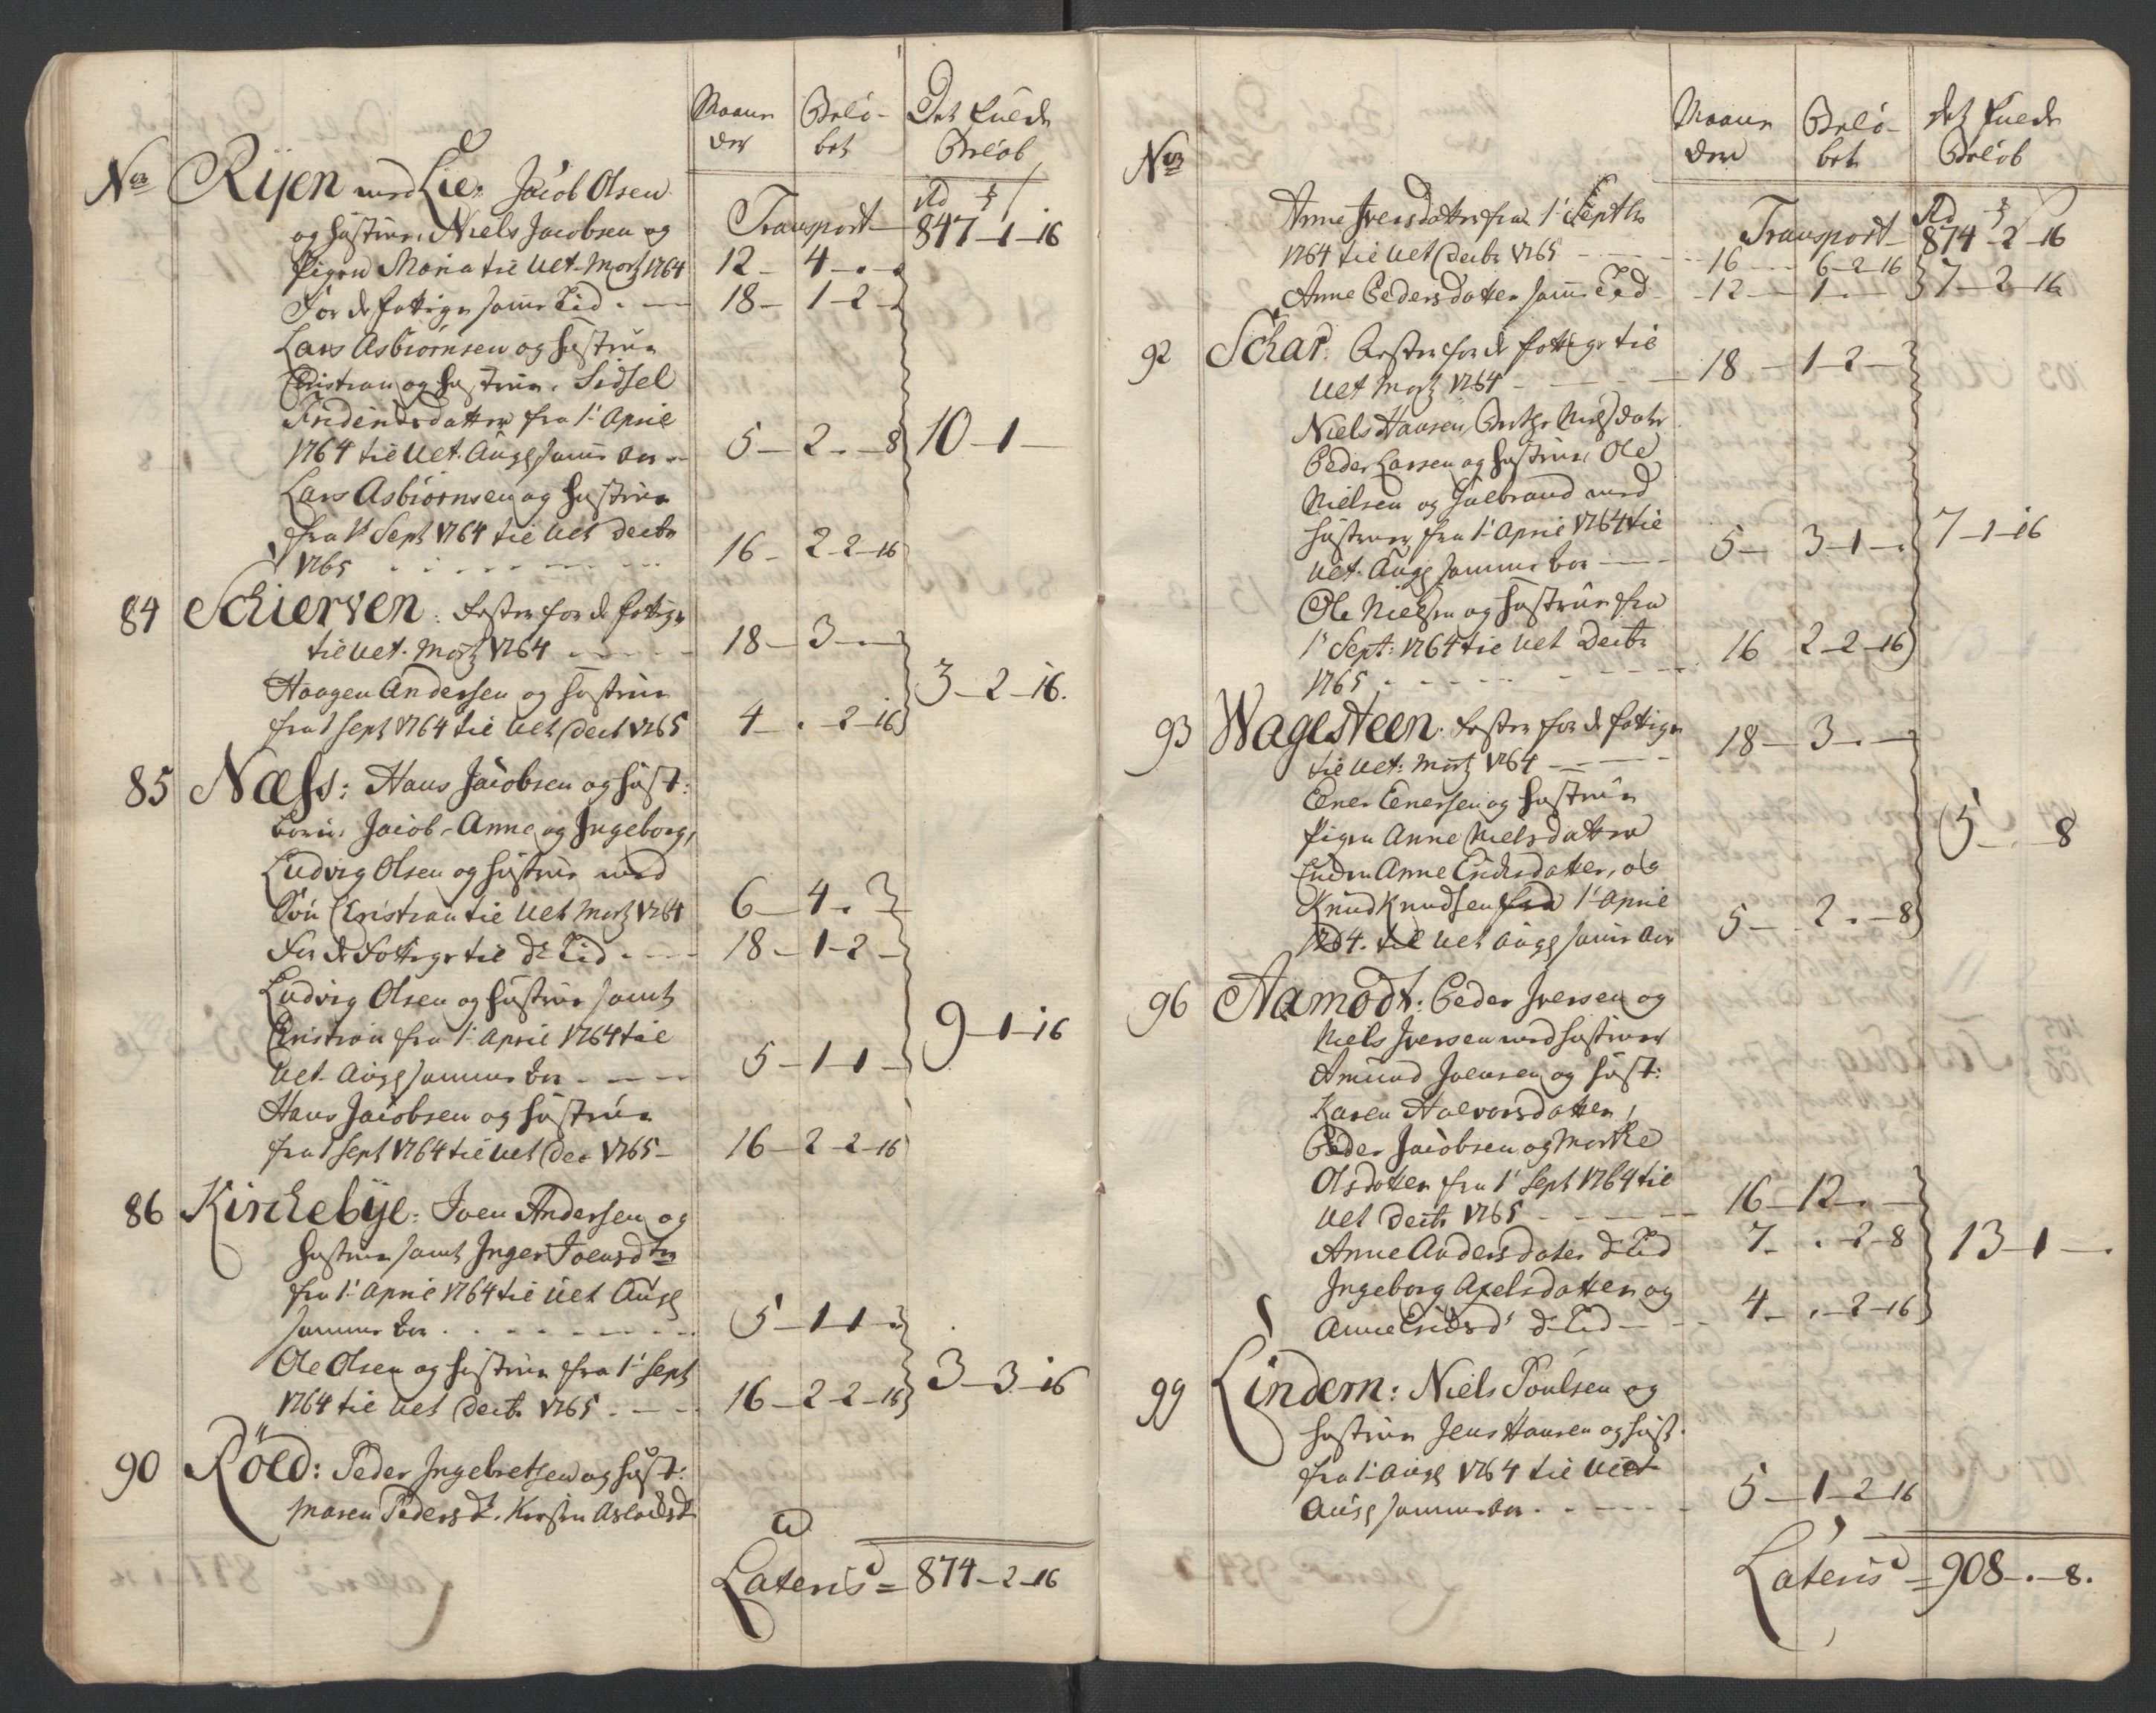 Maane Belø- Det fulde
der bet Beløb
No Rijen med Lie: Jacob Olsen
Rd
og hustrue, Niels Jacobsen og Transport 847-1-16
Pigen Maria til Ult. Martz 1764 12- 4-.-.
For de fattige samme Tid . - 18- 1-2-
Lars Asbiørnsen og hustrue
Christian og hustrue, Sidsel
datter fra 1. April
1764 til Ult. Aug samme aar - 5- 2.-8 10-1-
Lars Asbiørnsen og hustrue
fra 1 Sept 1764 til Ult Decbr
1765 16- 2-2-16
84 Schierven: Rester for de fattige
til Ult. Martz 1764 18- 3-.-
Haagen Andersen og hustrue 3-2-16.
fra 1 Sept 1764 til Ult Decb 1765 4-.-2-16
85 Næss: Hans Jacobsen og hust:
børn: Jacob, Anne og Ingeborg,
Ludvig Olsen og hustrue med
Søn Christian til Ult Martz 1764 6- 4.
For de Fattige til do Tid . - 18- 1-2-
Ludvig Olsen og hustrue samt
Christian fra 1. April 1764 til 9-1-16
Ult. Aug samme aar - 5-1-1-
Hans Jacobsen og hustrue
fra 1 Sept 1764 til Ult Dec 1765- 16-2-2-16
86 Kirchebÿe: Joen Andersen og
hustrue samt Inger Joensdtr
fra 1. April 1764 til Ult Aug
samme aar 5-1-1-
Ole Olsen og hustrue fra 1. Sept 3-3-16
1764 til Ult Decbr 1765 16-2-2-16
90 Röed: Peder Ingebretsen og hust:
Maren Pedersdr. Kersten
Lateris = 874-2-16
Maane Beløb- det fulde
der bet Beløb
No
Rd
Anne Iversdatter fra 1. Septbr Transport 874-2-16
1764 til Ult Decbr 1765 16 6-2-16
Anne Pedersdatter samme Tid 12- 1- 7-2-16
92 Schar. Rester for de fattige til
Ult Martz 1764 18 -1-2-
Niels Hansen, Berthe Nielsdatr
Peder Larsen og hustrue, Ole
Nielsen og Gulbrand med
hustruer, fra 1. April 1764 til
Ult. Aug samme aar 5- 3-1-. 7-1-16
Ole Nielsen og hustrue fra
1. Sept: 1764 til Ult Decbr
1765 16 2-2-16
93 Wagesteen: Rester for de fattige
til Ult: Martz 1764 18- 3-.-
Ener Enersen og hustrue
Pigen Anne Nielsdatter
Anne Erichsdatter, og 5-.-8
Knud Knudsen fra 1. April
1764. til Ult Aug samme aar 5-.2.-8
96 Aamodt: Peder Iversen og
Niels Iversen med hustruer
Amund Joensen og hust:
Karen Halvorsdatter,
Peder Jacobsen og Marthe
Olsdatter fra 1. Sept 1764 til
Ult Decbr 1765 16-12.-
Anne Andersdater do Tid 7-.-2-8 13-1-.
Ingeborg Axelsdatter og
Anne Erichsd. do Tid 4-.-2-16
99 Lindern: Niels Poulsen og
hustrue Jens Hansen og hust.
fra 1. Aug 1764 til Ult
Aug samme aar . 5-1-2-16
Lateris = 908-.-8.